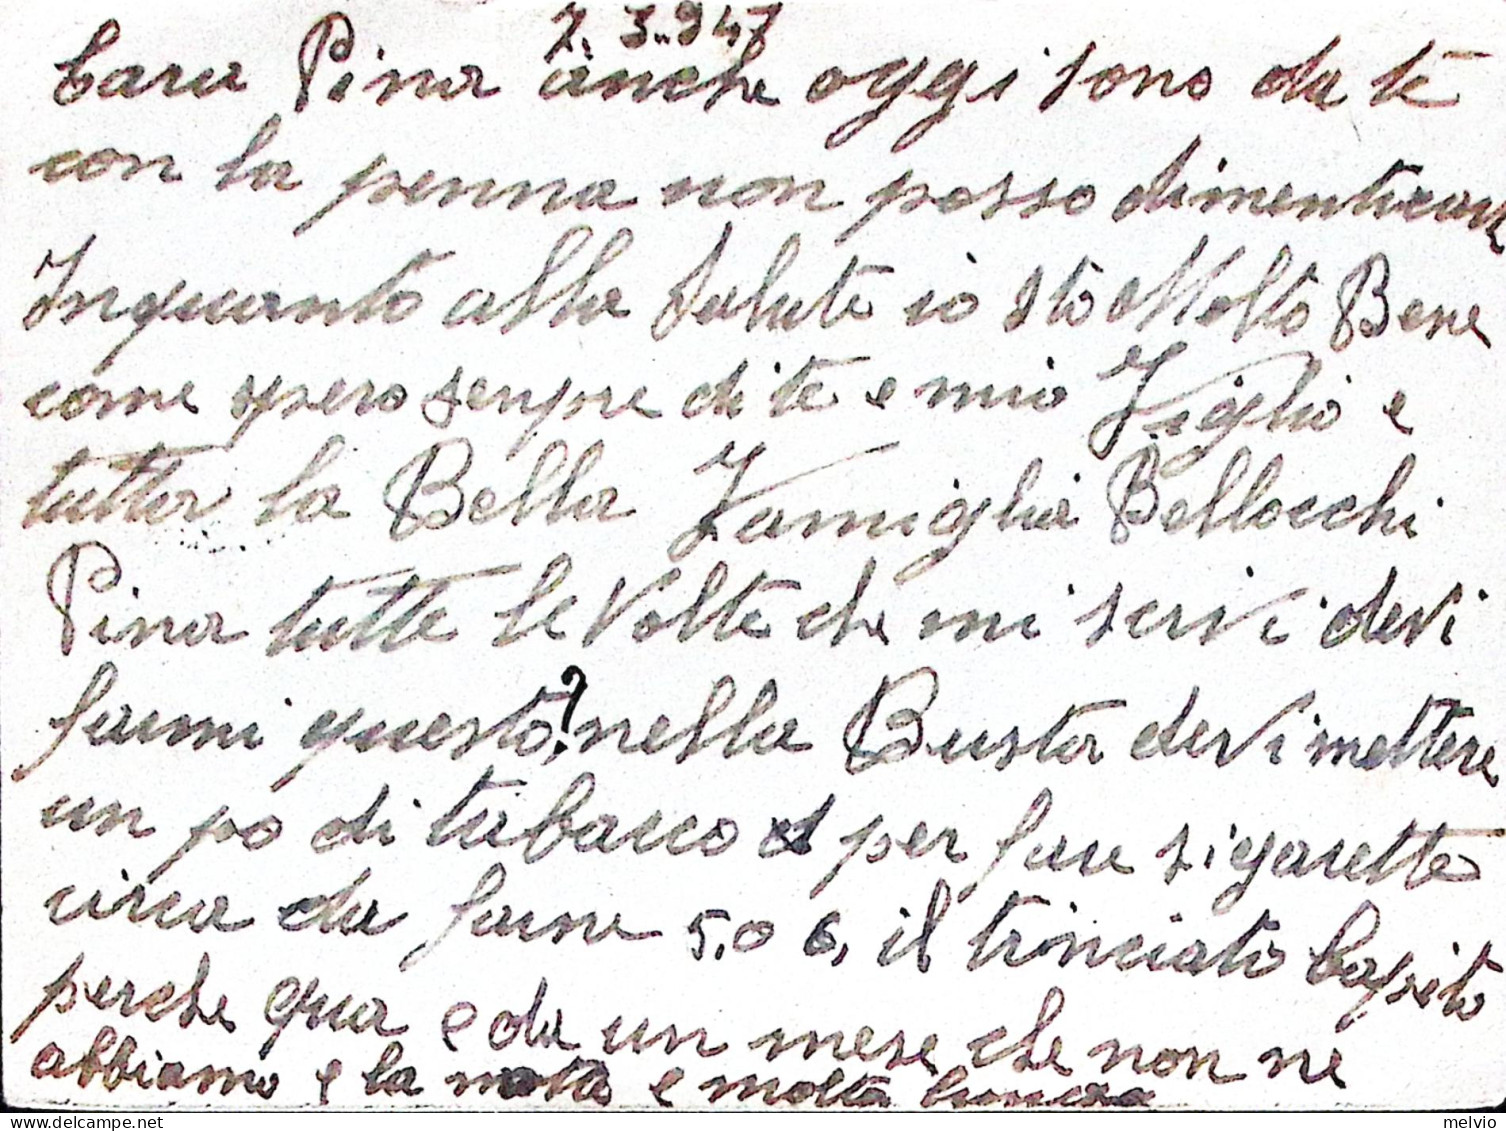 7. 3. 947
Cara Pina anche oggi sono da te
con la penna non posso dimenticar
Inquanto alla Salute io Sto Molto Bene
come spero senpre di te e mio Figlio e
tutta la Bella Famiglia Bellocchi
Pina tutte le Volte che mi scrivi devi
farmi questo? nella Busta devi mettere
un po di tabacco per fare sigarette
circa da farne 5, o 6, il trinciato Capito
perche qua e da un mese che non ne
abbiamo e la notte e molta
melvio